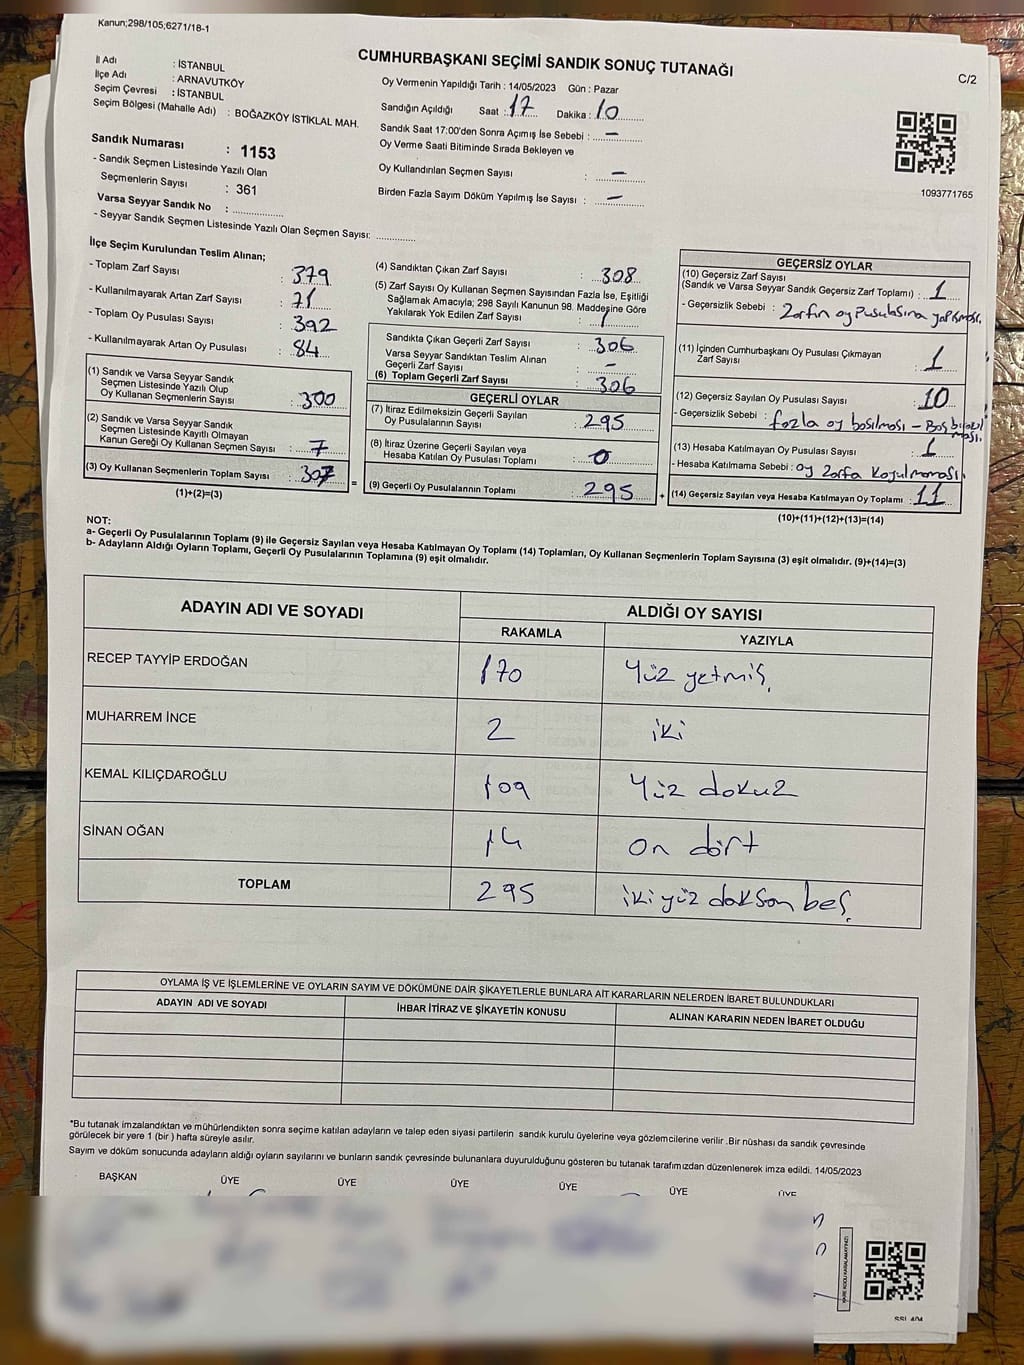 Kanun;298/105;6271/18-1
CUMHURBAŞKANI SEÇİMİ SANDIK SONUÇ TUTANAĞI
C/2
İl Adı : İSTANBUL
İlçe Adı : ARNAVUTKÖY
Seçim Çevresi : İSTANBUL
Seçim Bölgesi (Mahalle Adı) : BOĞAZKÖY İSTİKLAL MAH.
Oy Vermenin Yapıldığı Tarih : 14/05/2023 Gün : Pazar
Sandığın Açıldığı Saat : 17 Dakika : 10
Sandık Saat 17:00'den Sonra Açımış İse Sebebi : —
Oy Verme Saati Bitiminde Sırada Bekleyen ve
Oy Kullandırılan Seçmen Sayısı : —
Birden Fazla Sayım Döküm Yapılmış İse Sayısı : —
1093771765
Sandık Numarası : 1153
- Sandık Seçmen Listesinde Yazılı Olan
Seçmenlerin Sayısı : 361
Varsa Seyyar Sandık No : ..............
- Seyyar Sandık Seçmen Listesinde Yazılı Olan Seçmen Sayısı: ..............
İlçe Seçim Kurulundan Teslim Alınan;
- Toplam Zarf Sayısı : 379
- Kullanılmayarak Artan Zarf Sayısı : 71
- Toplam Oy Pusulası Sayısı : 392
- Kullanılmayarak Artan Oy Pusulası : 84
(1) Sandık ve Varsa Seyyar Sandık
Seçmen Listesinde Yazılı Olup
Oy Kullanan Seçmenlerin Sayısı : 300
(2) Sandık ve Varsa Seyyar Sandık
Seçmen Listesinde Kayıtlı Olmayan
Kanun Gereği Oy Kullanan Seçmen Sayısı : 7
(3) Oy Kullanan Seçmenlerin Toplam Sayısı : 307
(1)+(2)=(3)
(4) Sandıktan Çıkan Zarf Sayısı : 308
(5) Zarf Sayısı Oy Kullanan Seçmen Sayısından Fazla İse, Eşitliği
Sağlamak Amacıyla; 298 Sayılı Kanunun 98. Maddesine Göre
Yakılarak Yok Edilen Zarf Sayısı : 1
Sandıkta Çıkan Geçerli Zarf Sayısı : 306
Varsa Seyyar Sandıktan Teslim Alınan
Geçerli Zarf Sayısı : —
(6) Toplam Geçerli Zarf Sayısı : 306
GEÇERLİ OYLAR
(7) İtiraz Edilmeksizin Geçerli Sayılan
Oy Pusulalarının Sayısı : 295
(8) İtiraz Üzerine Geçerli Sayılan veya
Hesaba Katılan Oy Pusulası Toplamı : 0
(9) Geçerli Oy Pusulalarının Toplamı : 295
GEÇERSİZ OYLAR
(10) Geçersiz Zarf Sayısı
(Sandık ve Varsa Seyyar Sandık Geçersiz Zarf Toplamı) : 1
- Geçersizlik Sebebi : Zarfın oy pusulasına yapışması.
(11) İçinden Cumhurbaşkanı Oy Pusulası Çıkmayan
Zarf Sayısı : 1
(12) Geçersiz Sayılan Oy Pusulası Sayısı : 10
- Geçersizlik Sebebi : fazla oy basılması - Boş
(13) Hesaba Katılmayan Oy Pusulası Sayısı : 1
- Hesaba Katılmama Sebebi : oy zarfa koyulmaması
(14) Geçersiz Sayılan veya Hesaba Katılmayan Oy Toplamı : 11
(10)+(11)+(12)+(13)=(14)
NOT:
a- Geçerli Oy Pusulalarının Toplamı (9) ile Geçersiz Sayılan veya Hesaba Katılmayan Oy Toplamı (14) Toplamları, Oy Kullanan Seçmenlerin Toplam Sayısına (3) eşit olmalıdır. (9)+(14)=(3)
b- Adayların Aldığı Oyların Toplamı, Geçerli Oy Pusulalarının Toplamına (9) eşit olmalıdır.
ADAYIN ADI VE SOYADI ALDIĞI OY SAYISI
RAKAMLA YAZIYLA
RECEP TAYYİP ERDOĞAN 170 Yüz yetmiş.
MUHARREM İNCE 2 iki
KEMAL KILIÇDAROĞLU 109 Yüz dokuz
SİNAN OĞAN 14 on dört
TOPLAM 295 iki yüz doksan beş.
OYLAMA İŞ VE İŞLEMLERİNE VE OYLARIN SAYIM VE DÖKÜMÜNE DAİR ŞİKAYETLERLE BUNLARA AİT KARARLARIN NELERDEN İBARET BULUNDUKLARI
ADAYIN ADI VE SOYADI İHBAR İTİRAZ VE ŞİKAYETİN KONUSU ALINAN KARARIN NEDEN İBARET OLDUĞU
*Bu tutanak imzalandıktan ve mühürlendikten sonra seçime katılan adayların ve talep eden siyasi partilerin sandık kurulu üyelerine veya gözlemcilerine verilir .Bir nüshası da sandık çevresinde
görülecek bir yere 1 (bir ) hafta süreyle asılır.
Sayım ve döküm sonucunda adayların aldığı oyların sayılarını ve bunların sandık çevresinde bulunanlara duyurulduğunu gösteren bu tutanak tarafımızdan düzenlenerek imza edildi. 14/05/2023
BAŞKAN ÜYE ÜYE ÜYE ÜYE ÜYE ÜYE